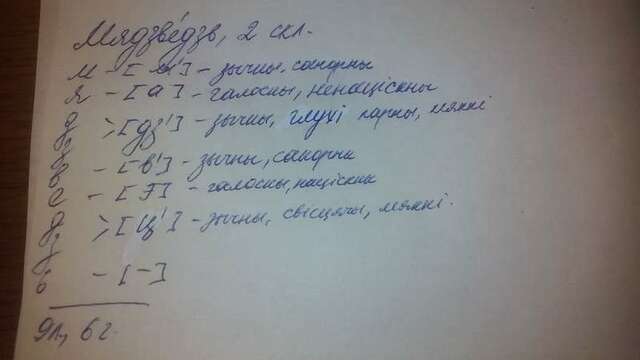 Мядзве́дзь, 2 скл.
м – [м'] – зычны, санорны
я – [а] – галосны, ненаціскны
д
з > [дз'] – зычны, глухі парны, мяккі
в – [в'] – зычны, санорны
е – [э] – галосны, націскны
д
з > [ц'] – зычны, свісцячы, мяккі.
ь – [–]
9л, 6 г.